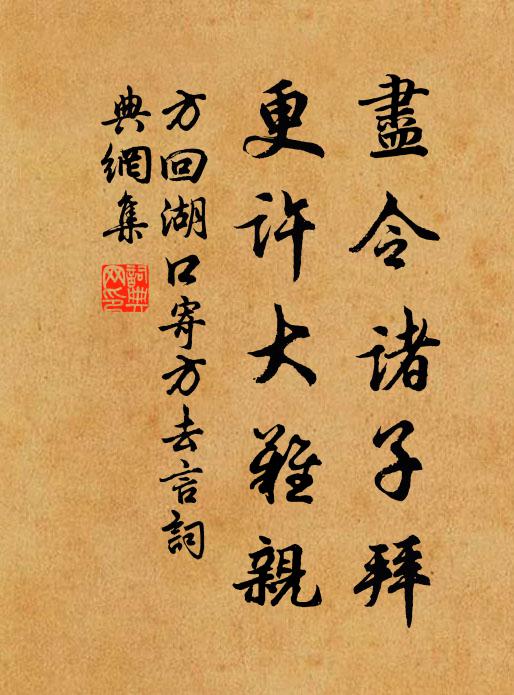 盡令諸子拜
更許大難親
方回湖口寄方去言詞
典網集
詞典
网印